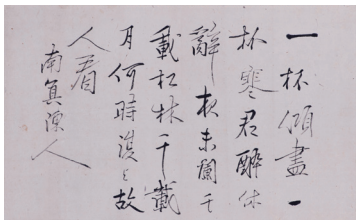 一杯傾盡一
杯寒君醉休
辭夜未闌千
載松林千載
月何時復與故
人看
南人